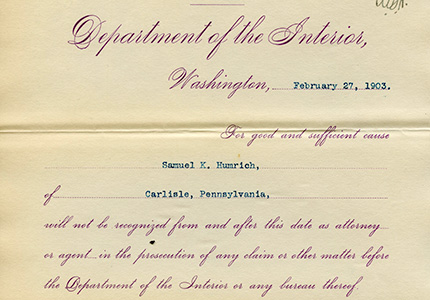 Department of the Interior,
Washington, February 27, 1903.
For good and sufficient cause
Samuel K. Humrich,
of Carlisle, Pennsylvania,
will not be recognized from and after this date as attorney
or agent in the prosecution of any claim or other matter before
the Department of the Interior or any bureau thereof.